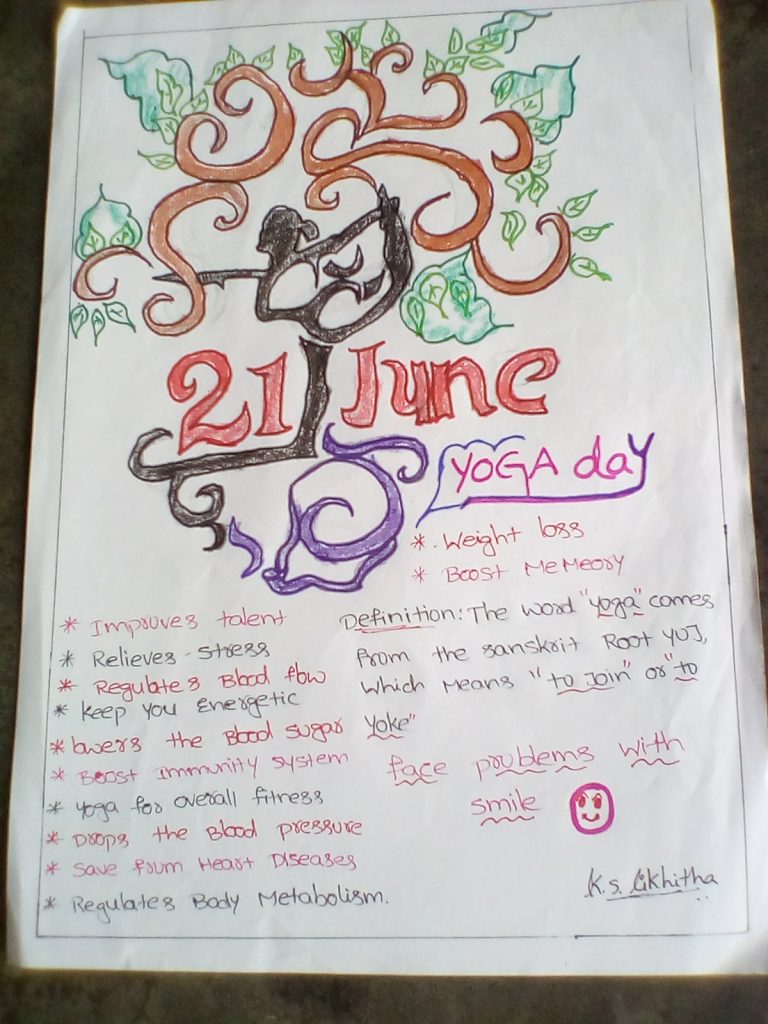 21 June
YOGA day
* Weight loss
* Boost MeMeory
* Improves talent
* Relieves Stress
* Regulates Blood flow
* Keep you Energetic
* lowers the Blood sugar
* Boost Immunity System
* Yoga for overall fitness
* Drops the Blood pressure
* Save from Heart Diseases
* Regulates Body Metabolism.
Definition: The word "Yoga" comes
from the sanskrit Root YUJ,
which Means "to Join" or "to
Yoke"
face problems with
smile
K.s. Likhitha